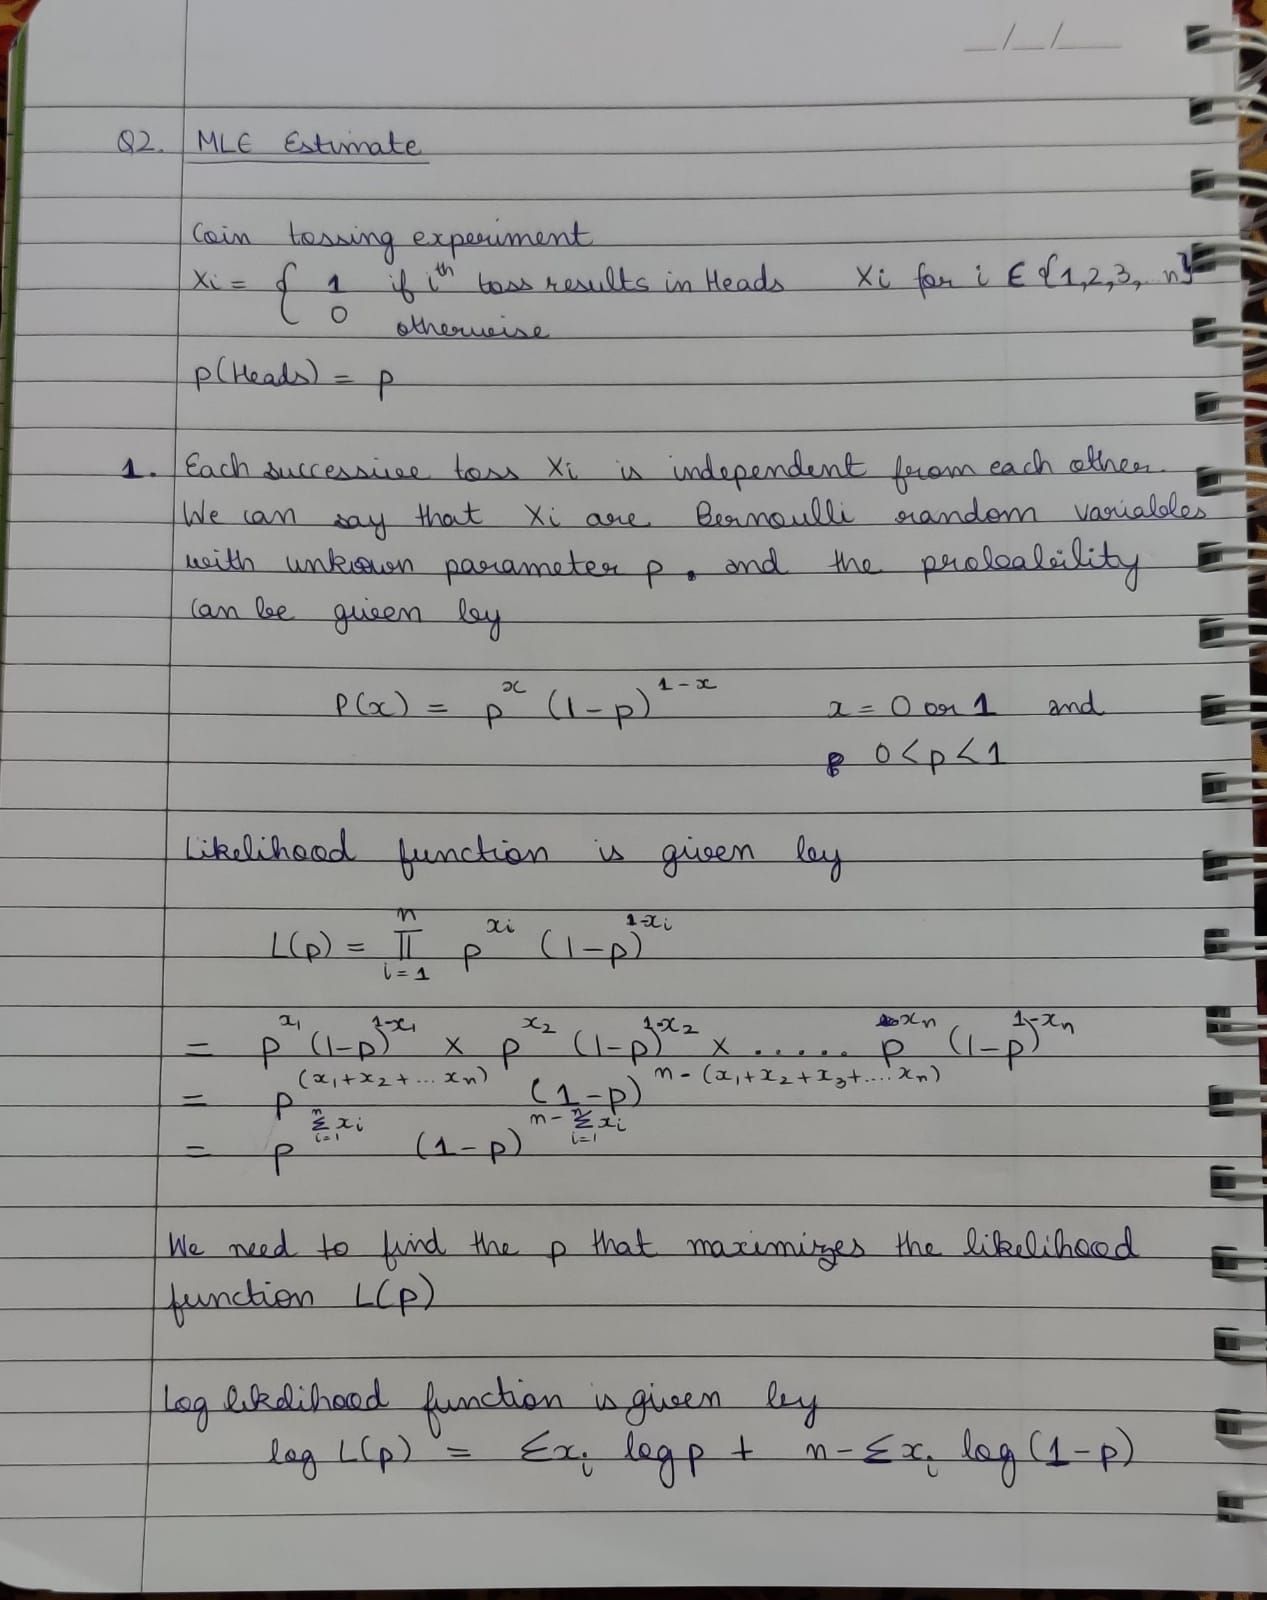 _/_/_
Q2. MLE Estimate
Coin tossing experiment
Xi = { 1 if ith toss results in Heads Xi for i ∈ {1,2,3, n}
0 otherwise
p(Heads) = p
1. Each successive toss Xi is independent from each other.
We can say that Xi are Bernoulli random variables
with unknown parameter p. and the probability
can be given by
P(x) = p^x (1-p)^(1-x) x = 0 or 1 and
0<p<1
Likelihood function is given by
L(p) = ∏_{i=1}^{n} p^{xi} (1-p)^{1-xi}
= p^{x1} (1-p)^{1-x1} × p^{x2} (1-p)^{1-x2} × ..... p^{xn} (1-p)^{1-xn}
= p^{(x1+x2+...xn)} (1-p)^{n-(x1+x2+x3+....xn)}
= p^{Σ_{i=1}^{n} xi} (1-p)^{n-Σ_{i=1}^{n} xi}
We need to find the p that maximizes the likelihood
function L(p)
Log likelihood function is given by
log L(p) = Σxi log p + n-Σxi log (1-p)